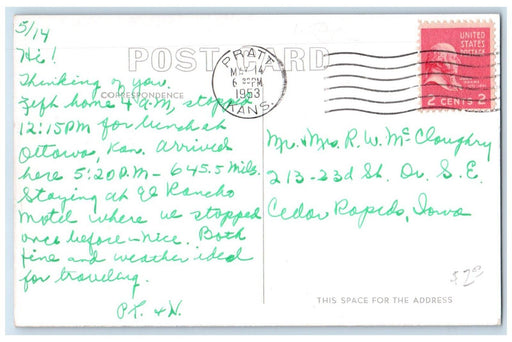 5/14
POST CARD
Hi!
Thinking of you.
CORRESPONDENCE
Left home 4 A.M, stopped
12:15PM for lunch at
Ottawa, Kan. Arrived
here 5:20P.M - 645.5 Mils.
Staying at El Rancho
Motel where we stopped
once before - nice. Both
fine and weather ideal
for traveling.
P.T. & N.
PRATT
MAY 14
6 PM
1953
KANS.
UNITED
STATES
POSTAGE
2 CENTS 2
Mr. & Mrs. R. W. McCloughry
213-23d St. Dr. S. E.
Cedar Rapids, Iowa
THIS SPACE FOR THE ADDRESS